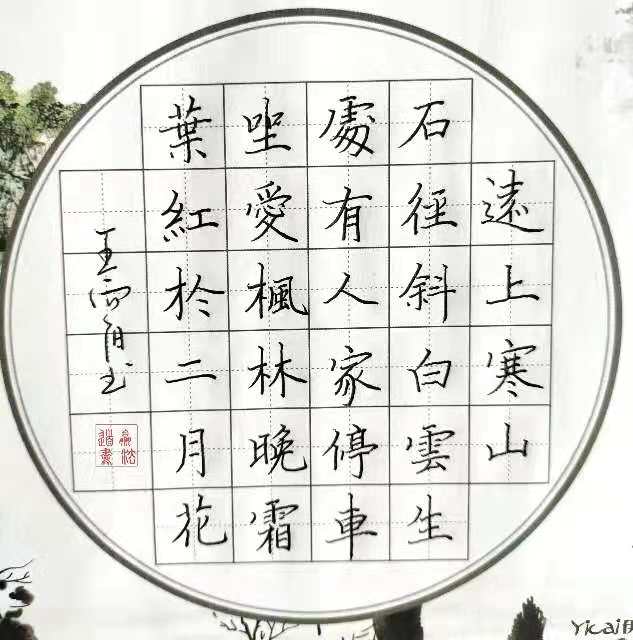 遠上寒山
石徑斜白雲生
處有人家停車
坐愛楓林晚霜
葉紅於二月花
王雨
Yicai